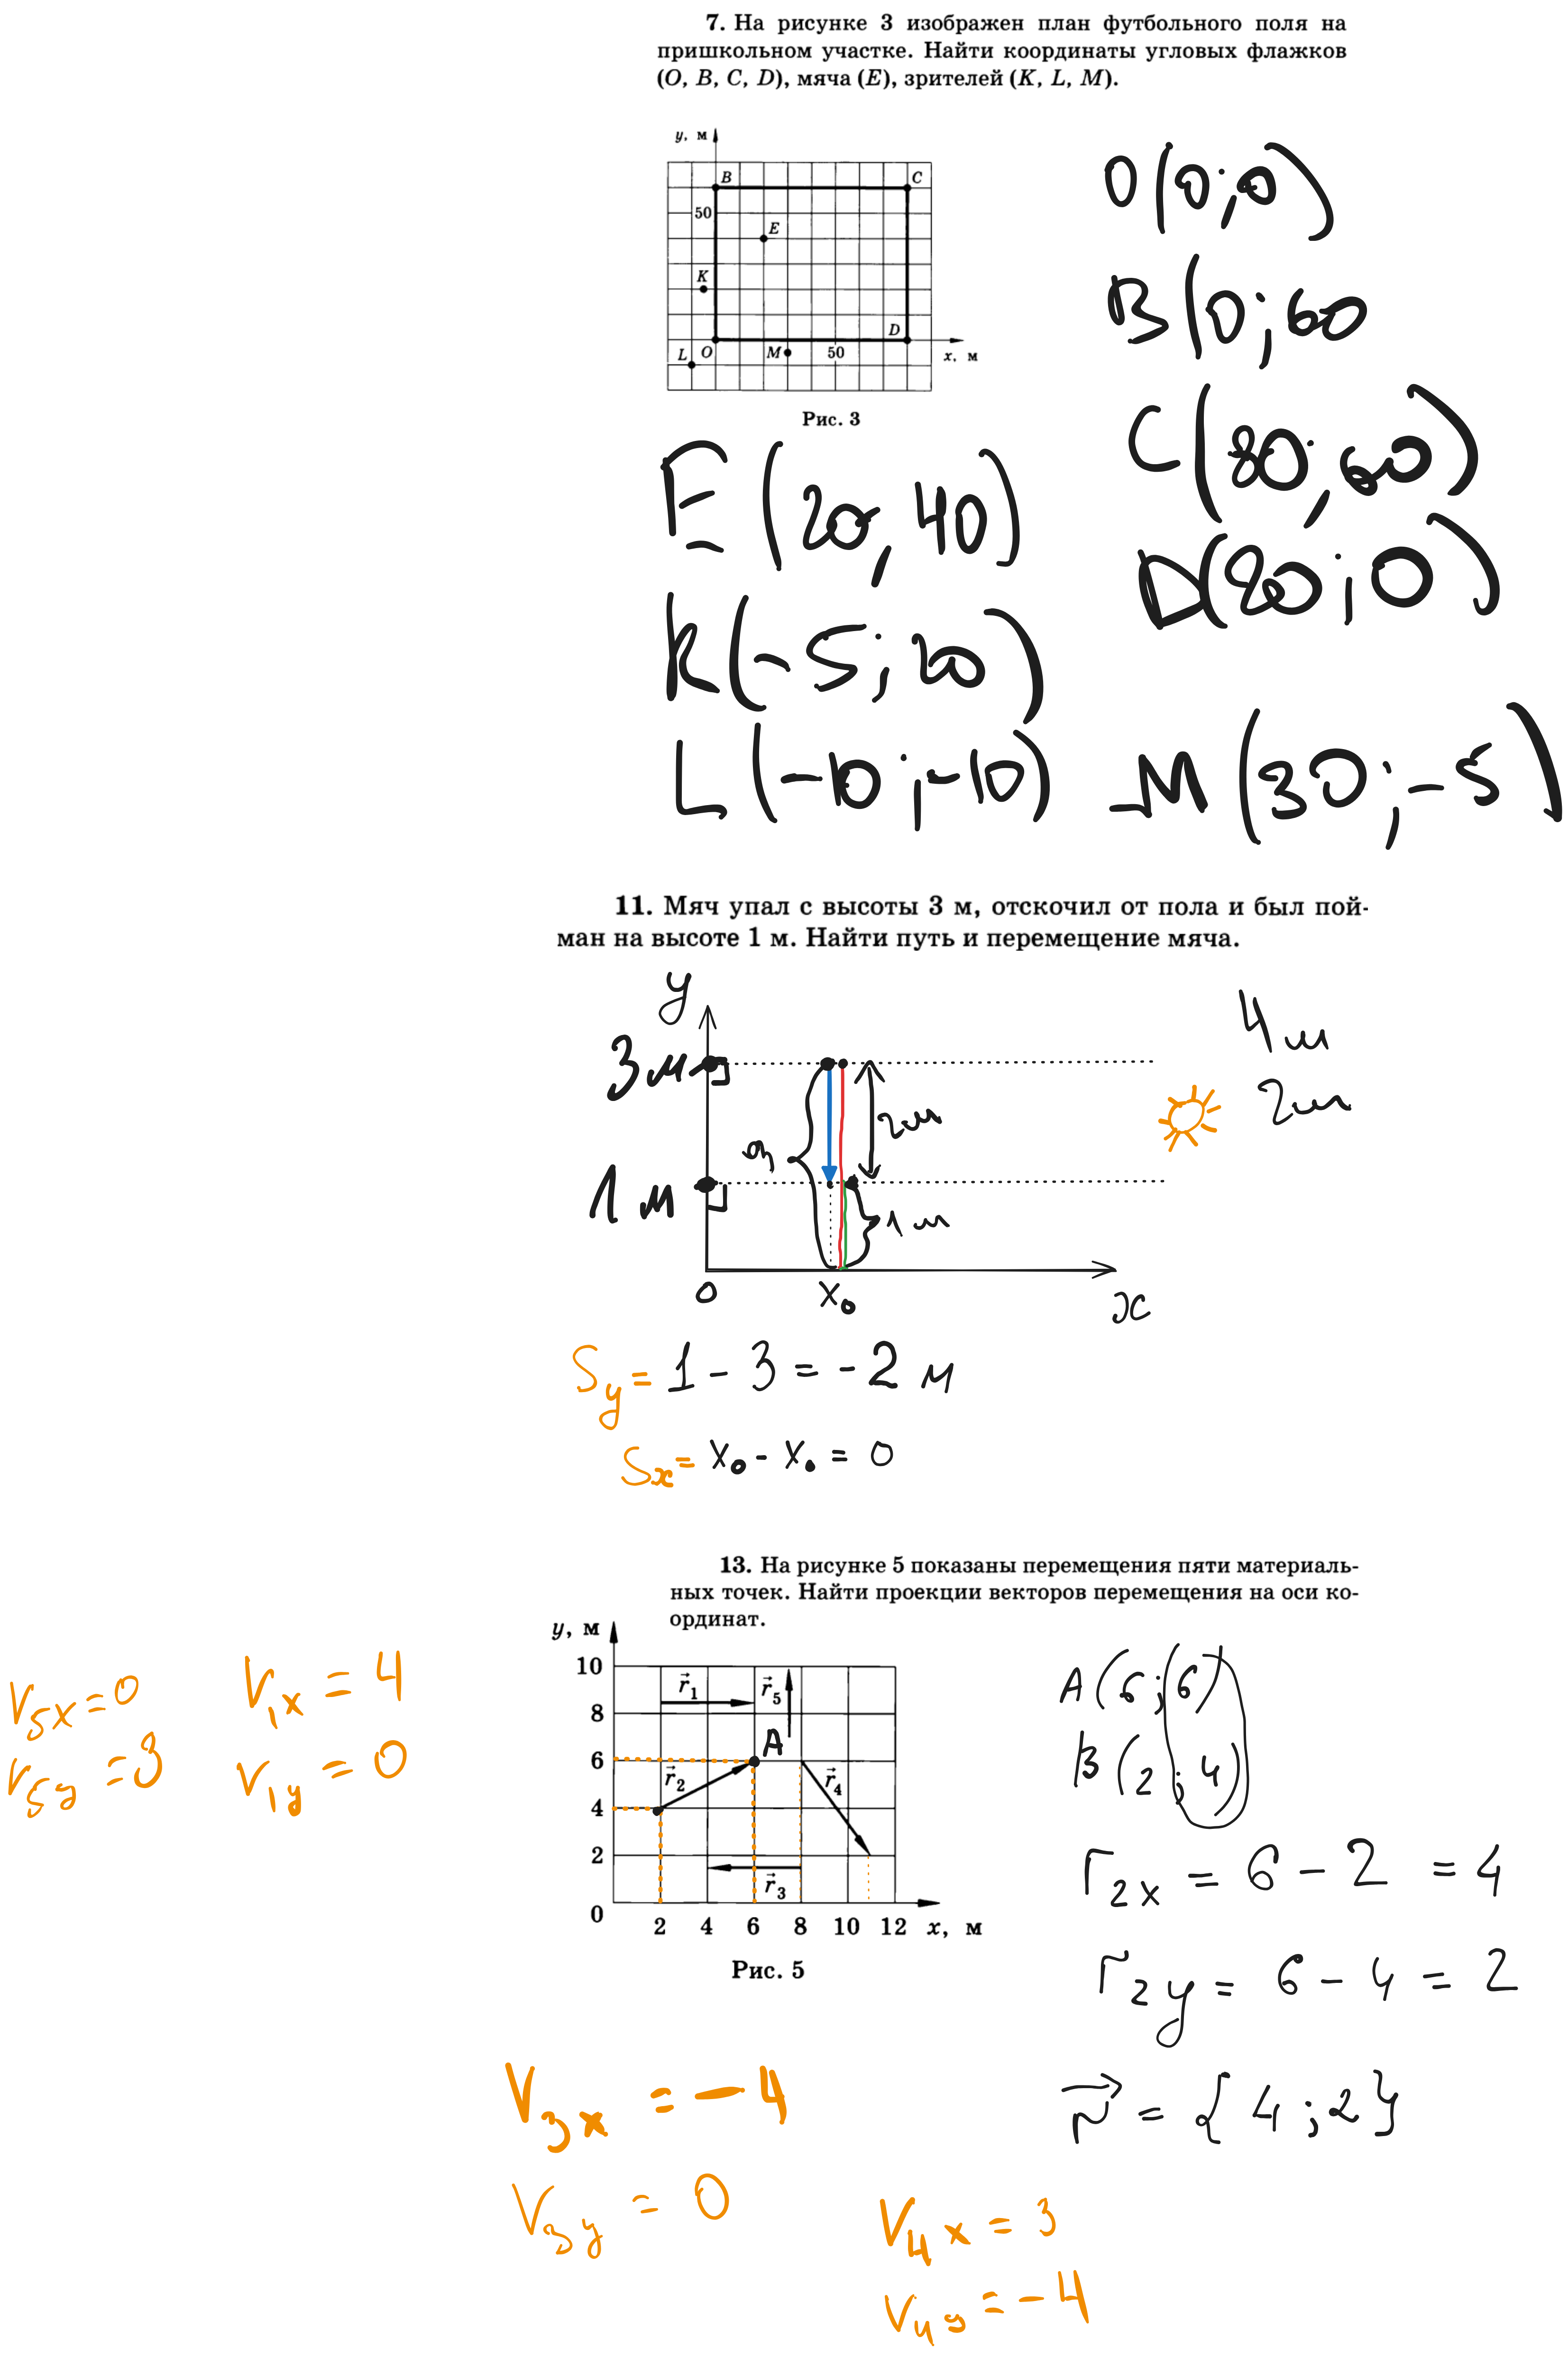 7. На рисунке 3 изображен план футбольного поля на
пришкольном участке. Найти координаты угловых флажков
(O, B, C, D), мяча (E), зрителей (K, L, M).
y, м
B
C
50
E
K
D
L
O
M
50
x, м
Рис. 3
O(0;0)
B(0;60
C(80;60)
D(80;0)
E(20,40)
K(-5;20)
L(-10;-10)
M(30;-5)
11. Мяч упал с высоты 3 м, отскочил от пола и был пой-
ман на высоте 1 м. Найти путь и перемещение мяча.
y
3м
2м
1м
1м
0
x₀
x
4м
2м
Sy = 1 - 3 = -2 м
Sx = x₀ - x₀ = 0
13. На рисунке 5 показаны перемещения пяти материаль-
ных точек. Найти проекции векторов перемещения на оси ко-
ординат.
y, м
10
8
6
4
2
0
2 4 6 8 10 12 x, м
r⃗₁
r⃗₅
A
r⃗₂
r⃗₄
r⃗₃
Рис. 5
V5x = 0
V5y = 3
V1x = 4
V1y = 0
A(6;6)
B(2;4)
r2x = 6 - 2 = 4
r2y = 6 - 4 = 2
r⃗ = {4;2}
V3x = -4
V3y = 0
V4x = 3
V4y = -4